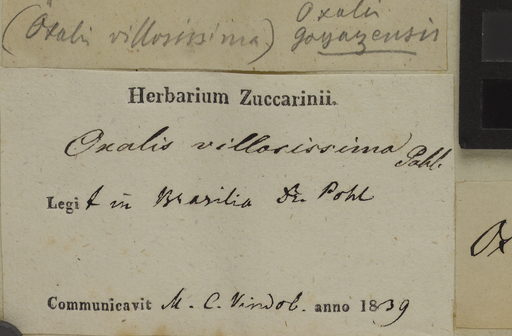 Oxalis
(Oxalis villosissima) goyazensis
Herbarium Zuccarinii.
Oxalis villosissima Pohl.
Legit in Brasilia Dr. Pohl
Communicavit M. C. Vindob. anno 1839
Ox